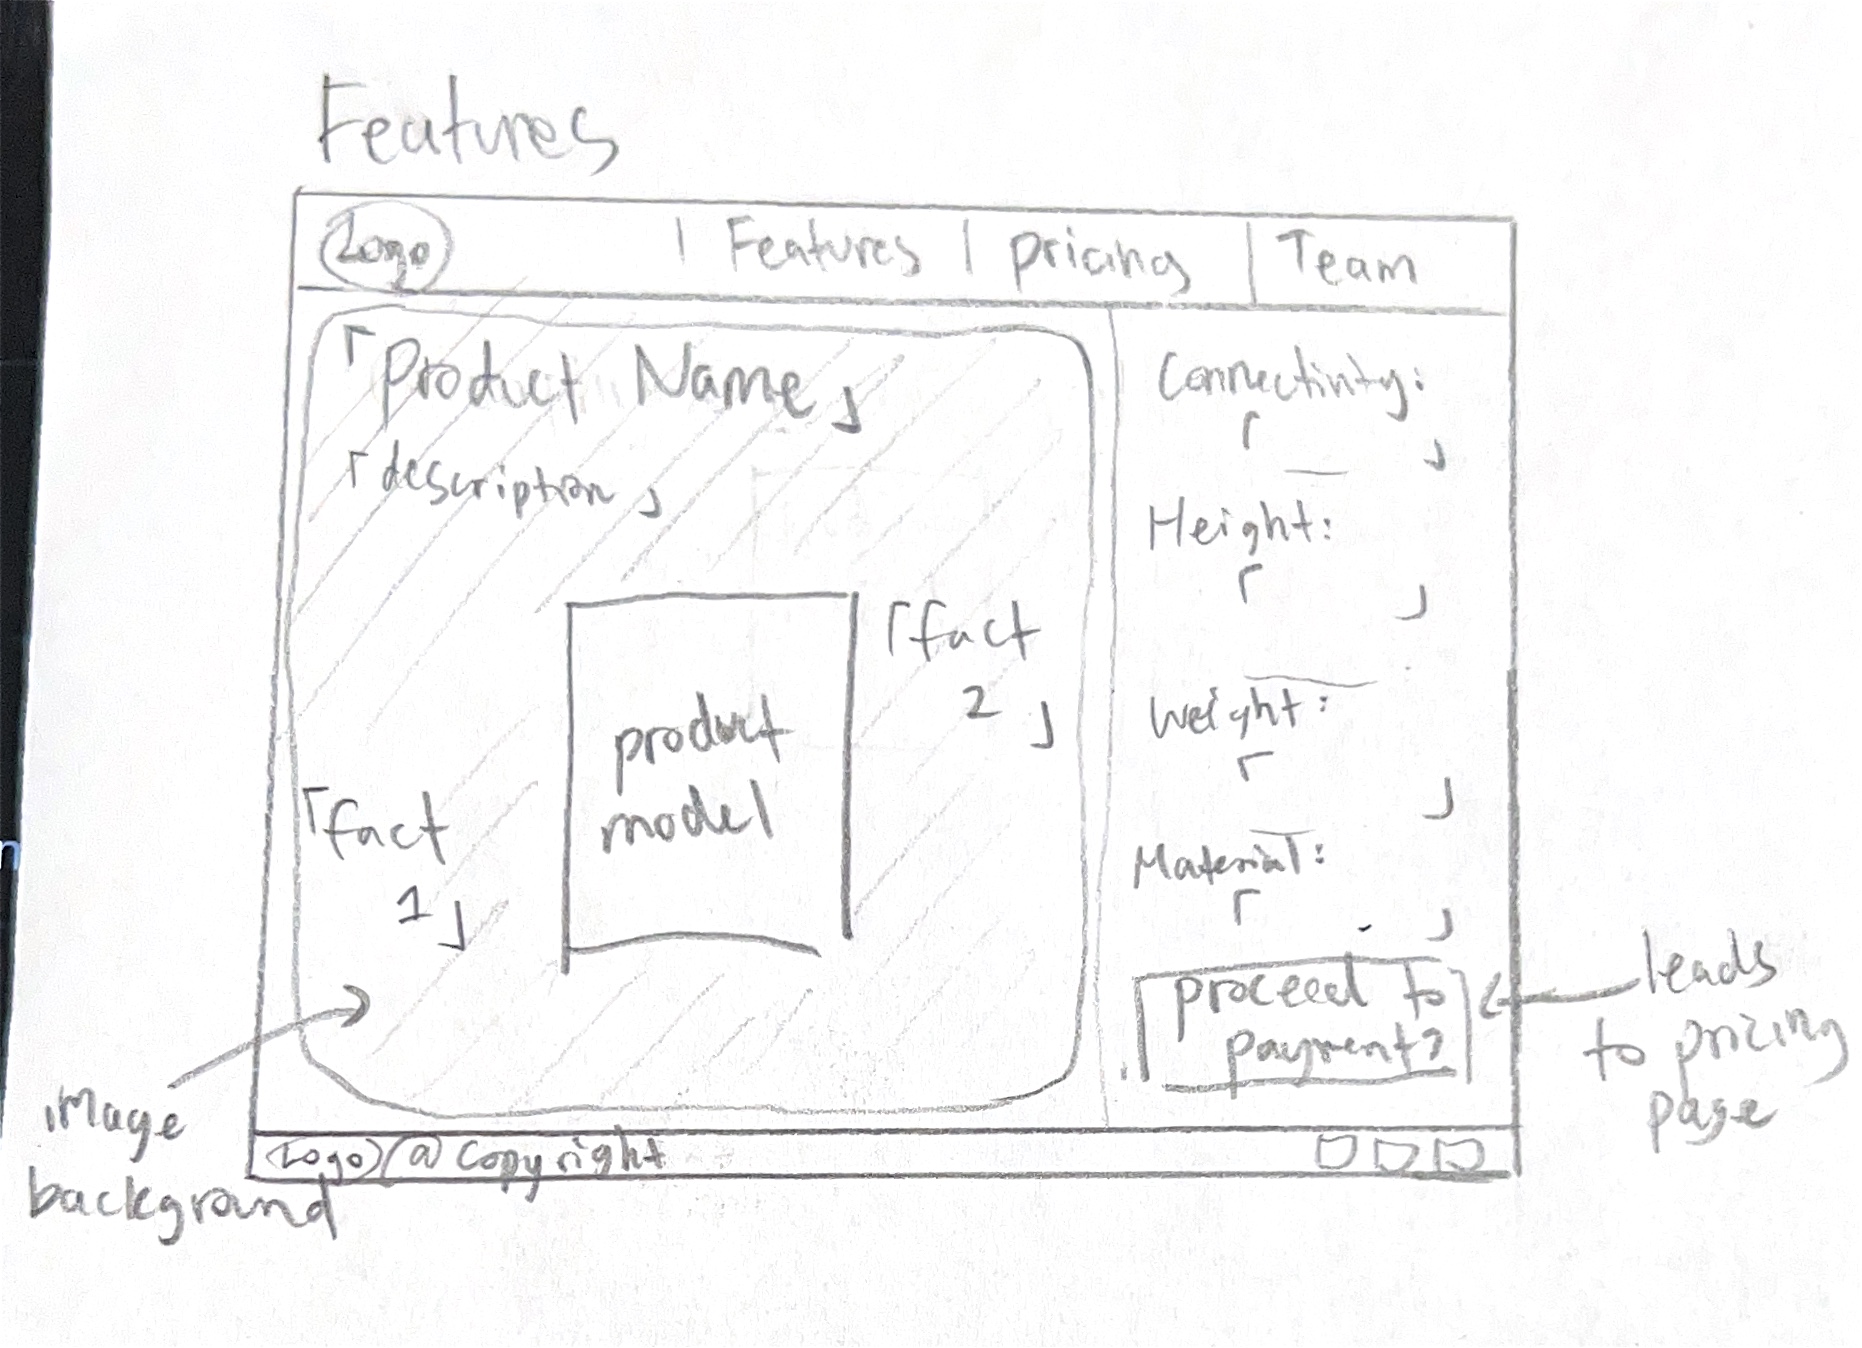 Features
Logo | Features | pricing | Team
「Product Name」
「description」
product
model
「fact
2」
「fact
1」
Connectivity:
「 」
Height:
「 」
Weight:
「 」
Material:
「 」
proceed to
payment?
leads
to pricing
page
image
background
Logo @ Copyright